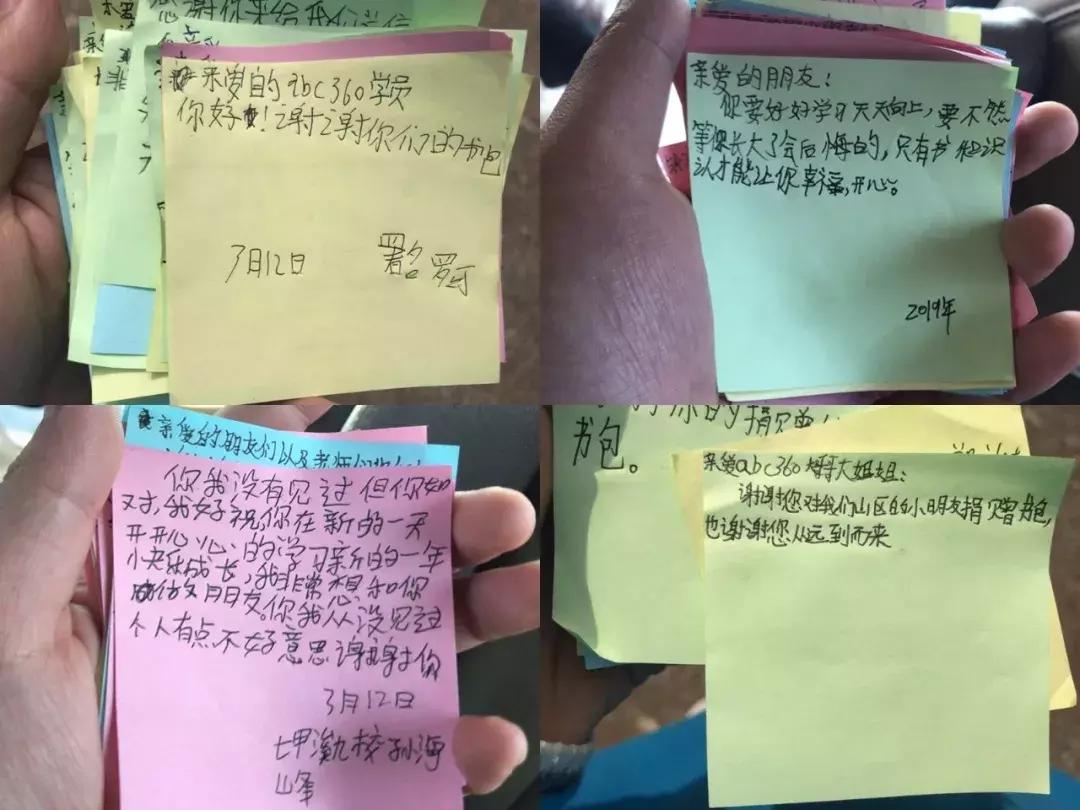 感谢你来给我们送信
亲爱的abc360学员
你好！谢谢你们的书包
3月12日 署名 罗
亲爱的朋友：
你要好好学习天天向上，要不然
等你长大了会后悔的，只有书和识
认才能让你幸福，开心。
2019年
亲爱的朋友们以及老师们
你我没有见过但你如
对，我好祝你在新的一天
开开心心的学习新的一年
小快乐成长，我非常想和你
做朋友。你我从没见过
个人有点不好意思谢谢你
3月12日
七甲 校孙海
峰
你的捐
书包。
亲爱abc360大哥大姐姐：
谢谢您对我们山区的小朋友捐赠书包，
也谢谢您从远到而来